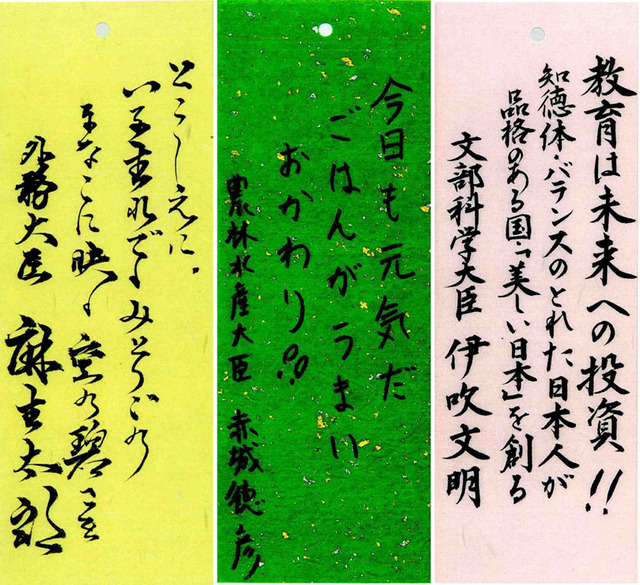 教育は未来への投資!!
知徳体・バランスのとれた日本人が
品格のある国・「美しい日本」を創る
文部科学大臣 伊吹文明
今日も元気だ
ごはんがうまい
おかわり!!
農林水産大臣 赤城徳彦
とこしえに、
生れでし みどりごの
まなこに 空の碧さを
外務大臣 麻生太郎